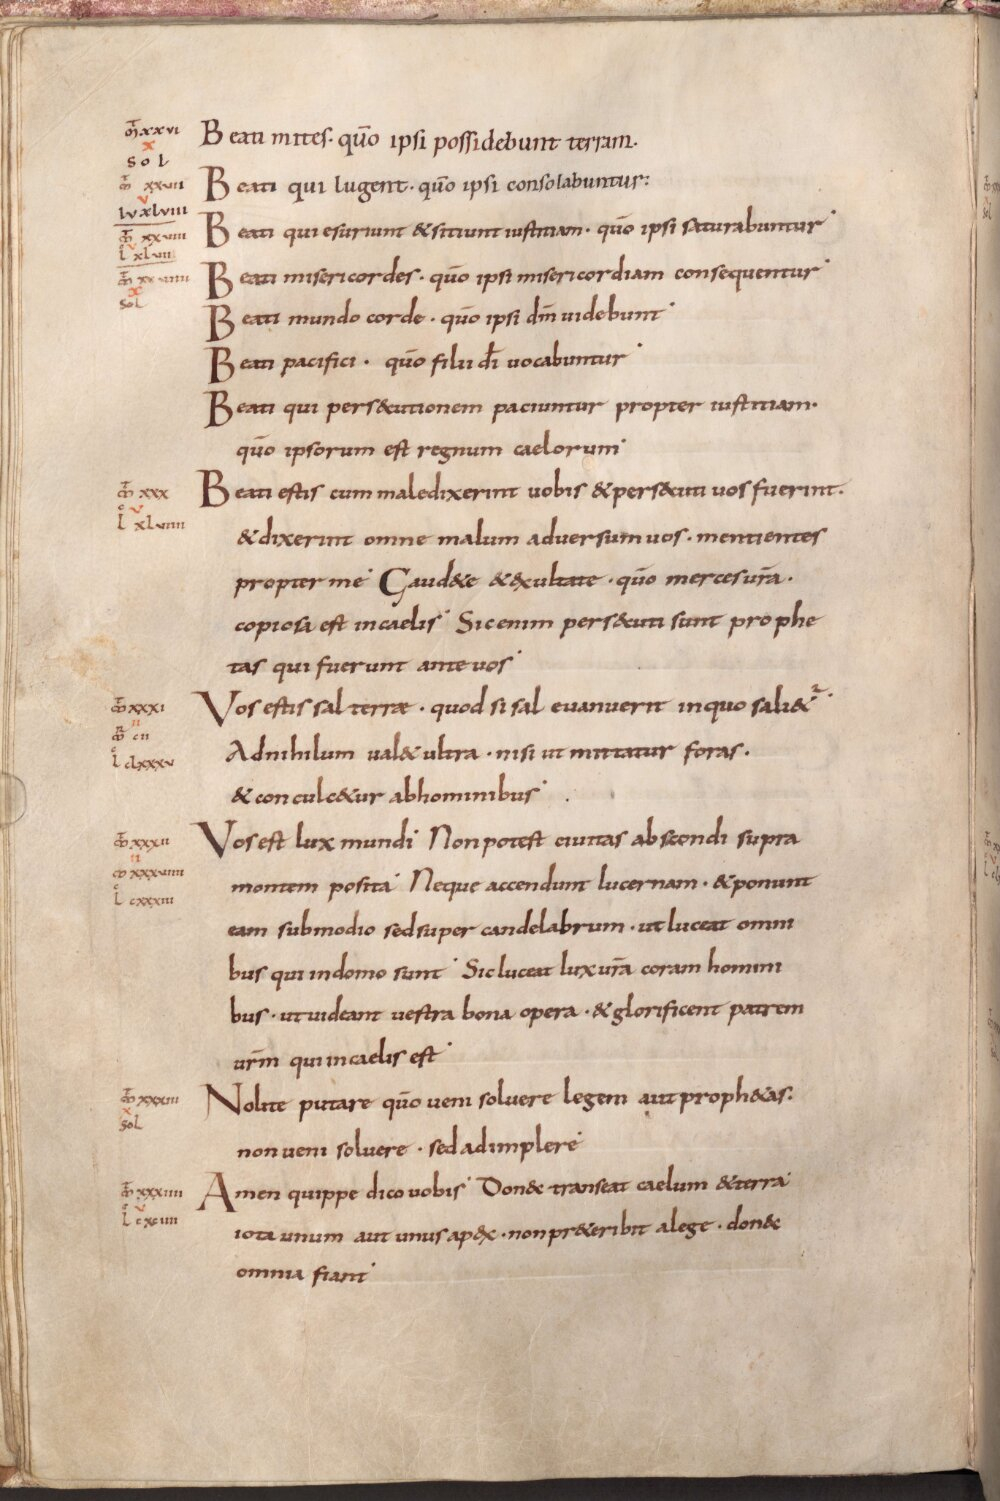 m̄ xxvi
x
sol
Beati mites· quō ipsi possidebunt terram·
m̄ xxvii
v
lu xlviii
Beati qui lugent· quō ipsi consolabuntur:
m̄ xxviii
v
l xlvii
Beati qui esuriunt &sitiunt iustitiam· quō ipsi saturabuntur·
m̄ xxviiii
x
sol
Beati misericordes· quō ipsi misericordiam consequentur·
Beati mundo corde· quō ipsi dm̄ videbunt·
Beati pacifici· quō filii dī vocabuntur·
Beati qui pers&cutionem paciuntur propter iustitiam·
quō ipsorum est regnum caelorum·
m̄ xxx
v
l xlviiii
Beati estis cum maledixerint vobis &pers&cuti vos fuerint·
&dixerint omne malum adversum vos· mentientes
propter me· Gaud&e &exultate· quō merces ur̄a·
copiosa est in caelis· Sic enim pers&cuti sunt prophe
tas qui fuerunt ante vos·
m̄ xxxi
ii
m̄r cii
l clxxxv
Vos estis sal terrae· quod si sal evanuerit in quo sali&ur·
Adnihilum val& ultra· nisi ut mittatur foras·
&conculc&ur ab hominibus·
m̄ xxxii
ii
m̄r xxxviiii
l cxxxiii
Vos est lux mundi· Non potest civitas abscondi supra
montem posita· Neque accendunt lucernam· &ponunt
eam sub modio sed super candelabrum· ut luceat omni
bus qui in domo sunt· Sic luceat lux ur̄a coram homini
bus· ut videant vestra bona opera· &glorificent patrem
ur̄m qui in caelis est·
m̄ xxxiii
x
sol
Nolite putare quō veni solvere legem aut proph&as:
non veni solvere· sed adimplere·
m̄ xxxiiii
v
l cxciiii
Amen quippe dico vobis· Donec transeat caelum &terra·
iota unum aut unus apex· non pr&eribit a lege· donec
omnia fiant·